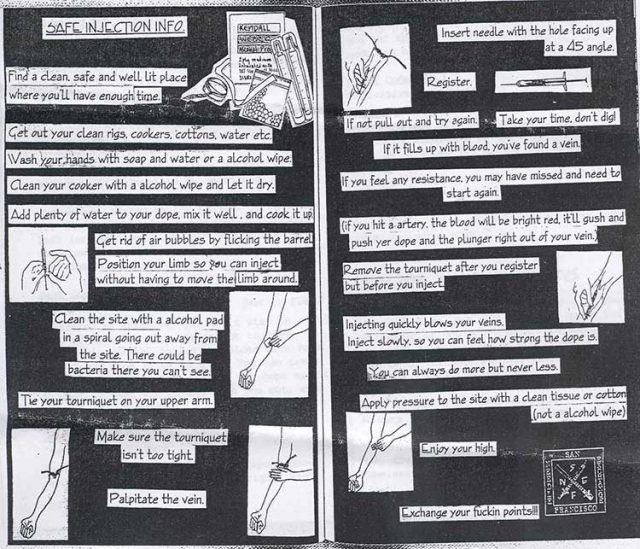 SAFE INJECTION INFO
KENDALL
WEBCOL
Alcohol Prep
2 ply medium
Find a clean, safe and well lit place
where you'll have enough time.
Get out your clean rigs, cookers, cottons, water etc.
Wash your hands with soap and water or a alcohol wipe.
Clean your cooker with a alcohol wipe and let it dry.
Add plenty of water to your dope, mix it well , and cook it up
Get rid of air bubbles by flicking the barrel
Position your limb so you can inject
without having to move the limb around.
Clean the site with a alcohol pad
in a spiral going out away from
the site. There could be
bacteria there you can't see.
Tie your tourniquet on your upper arm.
Make sure the tourniquet
isn't too tight.
Palpitate the vein.
Insert needle with the hole facing up
at a 45 angle.
Register.
If not pull out and try again. Take your time, don't dig!
If it fills up with blood, you've found a vein.
If you feel any resistance, you may have missed and need to
start again.
(if you hit a artery, the blood will be bright red, it'll gush and
push yer dope and the plunger right out of your vein.)
Remove the tourniquet after you register
but before you inject.
Injecting quickly blows your veins.
Inject slowly, so you can feel how strong the dope is.
You can always do more but never less.
Apply pressure to the site with a clean tissue or cotton
(not a alcohol wipe)
Enjoy your high.
Exchange your fuckin points!!!
SAN
FRANCISCO